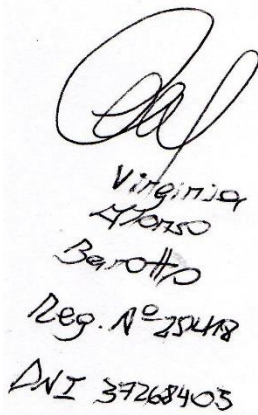 Virginia
Alonso
Barotto
Reg. Nº 25418
DNI 37268403